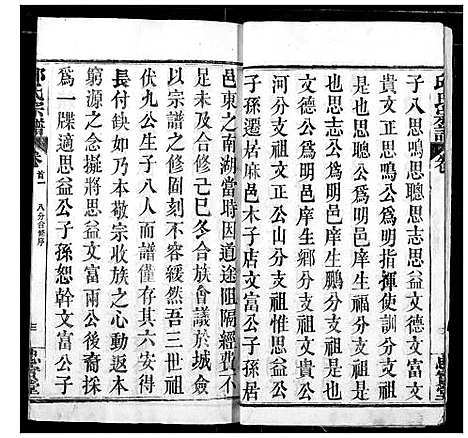 子八思聰思志思益文德文富文
貴文正思鳴公爲明指揮使訓分支祖
是也思聰公爲明庠生福分支祖是
也思志公爲明庠生鵬分支祖是也
文德公爲明邑庠生鄉分支祖文貴公
河分支祖文正公山分支祖惟思益公
子孫遷居麻邑木子店文富公子孫居
邑東之南湖當時因道途阻隔經費不
足未及合修己巳冬合族會議於城僉
以宗譜之修刻不容緩然吾三世祖
伏九公生子八人而譜僅存其六安得
長付缺如乃本敬宗收族之心動返本
窮源之念擬將思益文富兩公後裔採
爲一牒適思益公子孫恕幹文富公子
邱氏宗譜
卷首一
八分合修序